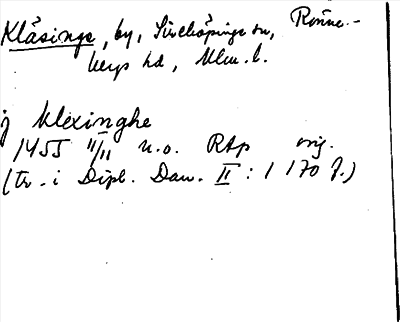 Kläsinge, by, Simlinge sn, Rönne-
bergs hd, Mlm. l.
j klexinghe
1455 11/11 u.o. RAp orig.
(tr. i Dipl. Dan. II : 1 170 f.)